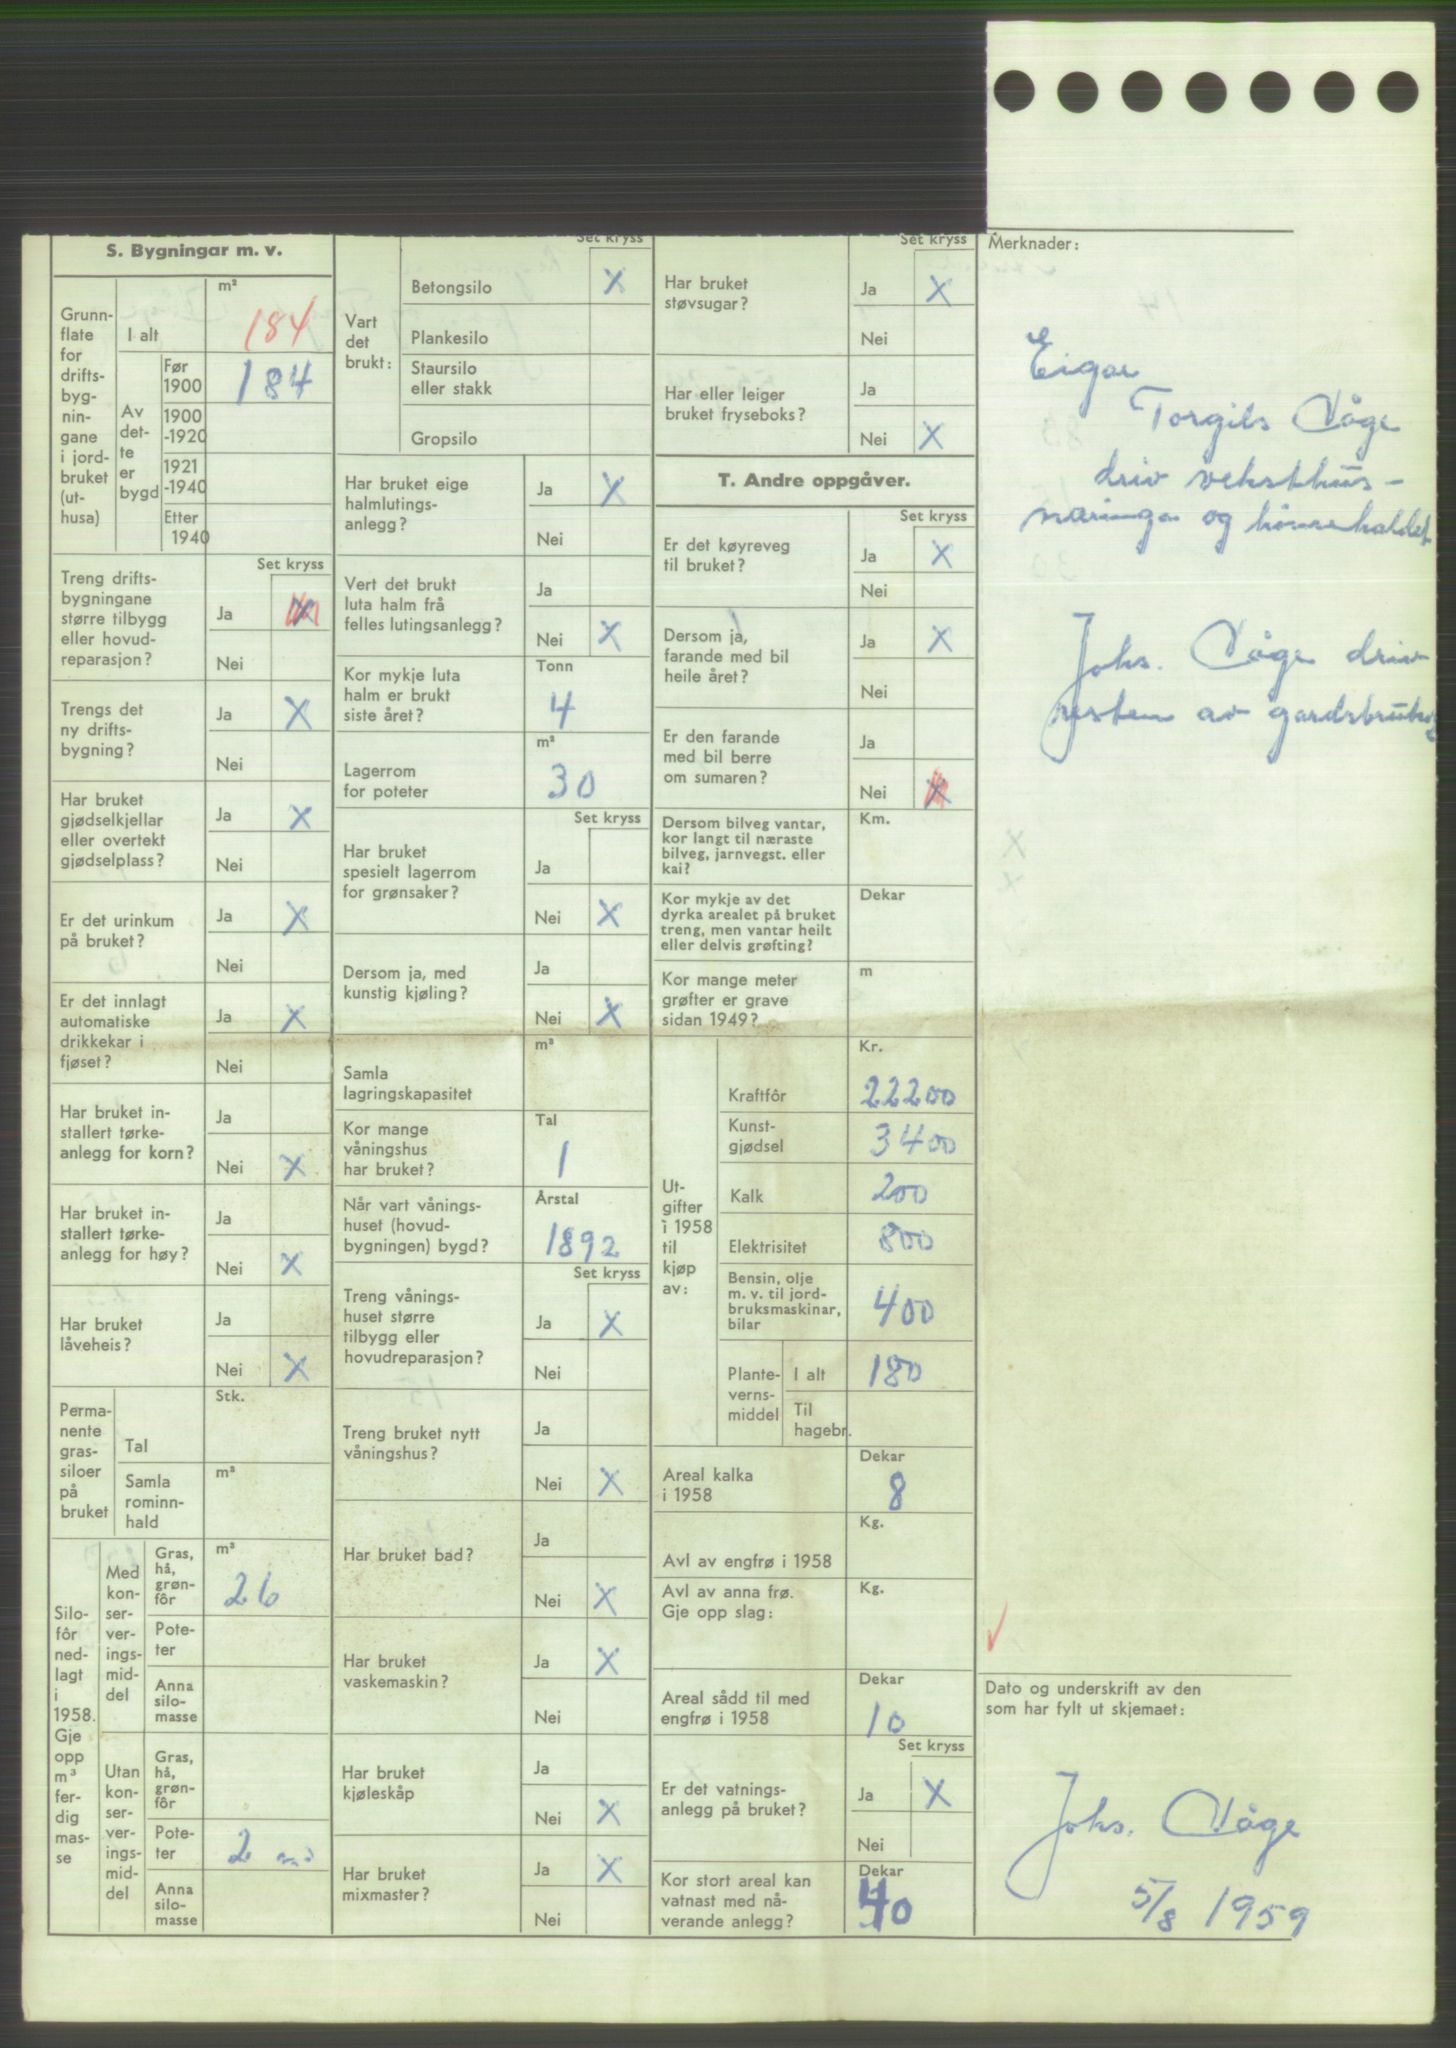 S. Bygningar m. v.
Grunn-
flate
for
drifts-
byg-
nin-
gane
i jord-
bruket
(ut-
husa)
I alt
m²
184
Av
det-
te
er
bygd
Før
1900
184
1900
-1920
1921
-1940
Etter
1940
Set kryss
Treng drifts-
bygningane
større tilbygg
eller hovud-
reparasjon?
Ja X
Nei
Trengs det
ny drifts-
bygning?
Ja X
Nei
Har bruket
gjødselkjellar
eller overtekt
gjødselplass?
Ja X
Nei
Er det urinkum
på bruket?
Ja X
Nei
Er det innlagt
automatiske
drikkekar i
fjøset?
Ja X
Nei
Har bruket in-
stallert tørke-
anlegg for korn?
Ja
Nei X
Har bruket in-
stallert tørke-
anlegg for høy?
Ja
Nei X
Har bruket
låveheis?
Ja
Nei X
Perma-
nente
gras-
siloer
på
bruket
Tal
Stk.
Samla
rominn-
hald
m³
Silo-
fôr
ned-
lagt
i
1958.
Gje
opp
m³
fer-
dig
mas-
se
Med
kon-
ser-
ver-
ings-
mid-
del
Gras,
hå,
grøn-
fôr
m³
26
Pote-
ter
Anna
silo-
masse
Utan
kon-
ser-
ver-
ings-
mid-
del
Gras,
hå,
grøn-
fôr
Pote-
ter
2 m³
Anna
silo-
masse
Vart
det
brukt:
Set kryss
Betongsilo X
Plankesilo
Staursilo
eller stakk
Gropsilo
Har bruket eige
halmlutings-
anlegg?
Ja X
Nei
Vert det brukt
luta halm frå
felles lutingsanlegg?
Ja
Nei X
Kor mykje luta
halm er brukt
siste året?
Tonn
4
Lagerrom
for poteter
m²
30
Set kryss
Har bruket
spesielt lagerrom
for grønsaker?
Ja
Nei X
Dersom ja, med
kunstig kjøling?
Ja
Nei X
Samla
lagringskapasitet
m³
Kor mange
våningshus
har bruket?
Tal
1
Når vart vånings-
huset (hovud-
bygningen) bygd?
Årstal
1892
Set kryss
Treng vånings-
huset større
tilbygg eller
hovudreparasjon?
Ja X
Nei
Treng bruket nytt
våningshus?
Ja
Nei X
Har bruket bad?
Ja
Nei X
Har bruket
vaskemaskin?
Ja X
Nei
Har bruket
kjøleskåp
Ja
Nei X
Har bruket
mixmaster?
Ja X
Nei
Set kryss
Har bruket
støvsugar?
Ja X
Nei
Har eller leiger
bruket fryseboks?
Ja
Nei X
T. Andre oppgåver.
Set kryss
Er det køyreveg
til bruket?
Ja X
Nei
Dersom ja,
farande med bil
heile året?
Ja X
Nei
Er den farande
med bil berre
om sumaren?
Ja
Nei X
Dersom bilveg vantar,
kor langt til næraste
bilveg, jarnvegst. eller
kai?
Km.
Kor mykje av det
dyrka arealet på bruket
treng, men vantar heilt
eller delvis grøfting?
Dekar
Kor mange meter
grøfter er grave
sidan 1949?
m
Ut-
gifter
i 1958
til
kjøp
av:
Kr.
Kraftfôr
22200
Kunst-
gjødsel
3400
Kalk
200
Elektrisitet
800
Bensin, olje
m. v. til jord-
bruksmaskinar,
bilar
400
Plante-
verns-
middel
I alt
180
Til
hagebr.
Areal kalka
i 1958
Dekar
8
Avl av engfrø i 1958
Kg.
Avl av anna frø.
Gje opp slag:
Kg.
Areal sådd til med
engfrø i 1958
Dekar
10
Set kryss
Er det vatnings-
anlegg på bruket?
Ja X
Nei
Kor stort areal kan
vatnast med nå-
verande anlegg?
Dekar
40
Merknader:
Eigar
Torgils Våge
driv veksthus-
næringa og hønsehaldet
Johs. Våge driv
resten av gardsbruket
Dato og underskrift av den
som har fylt ut skjemaet:
Johs. Våge
5/8 1959